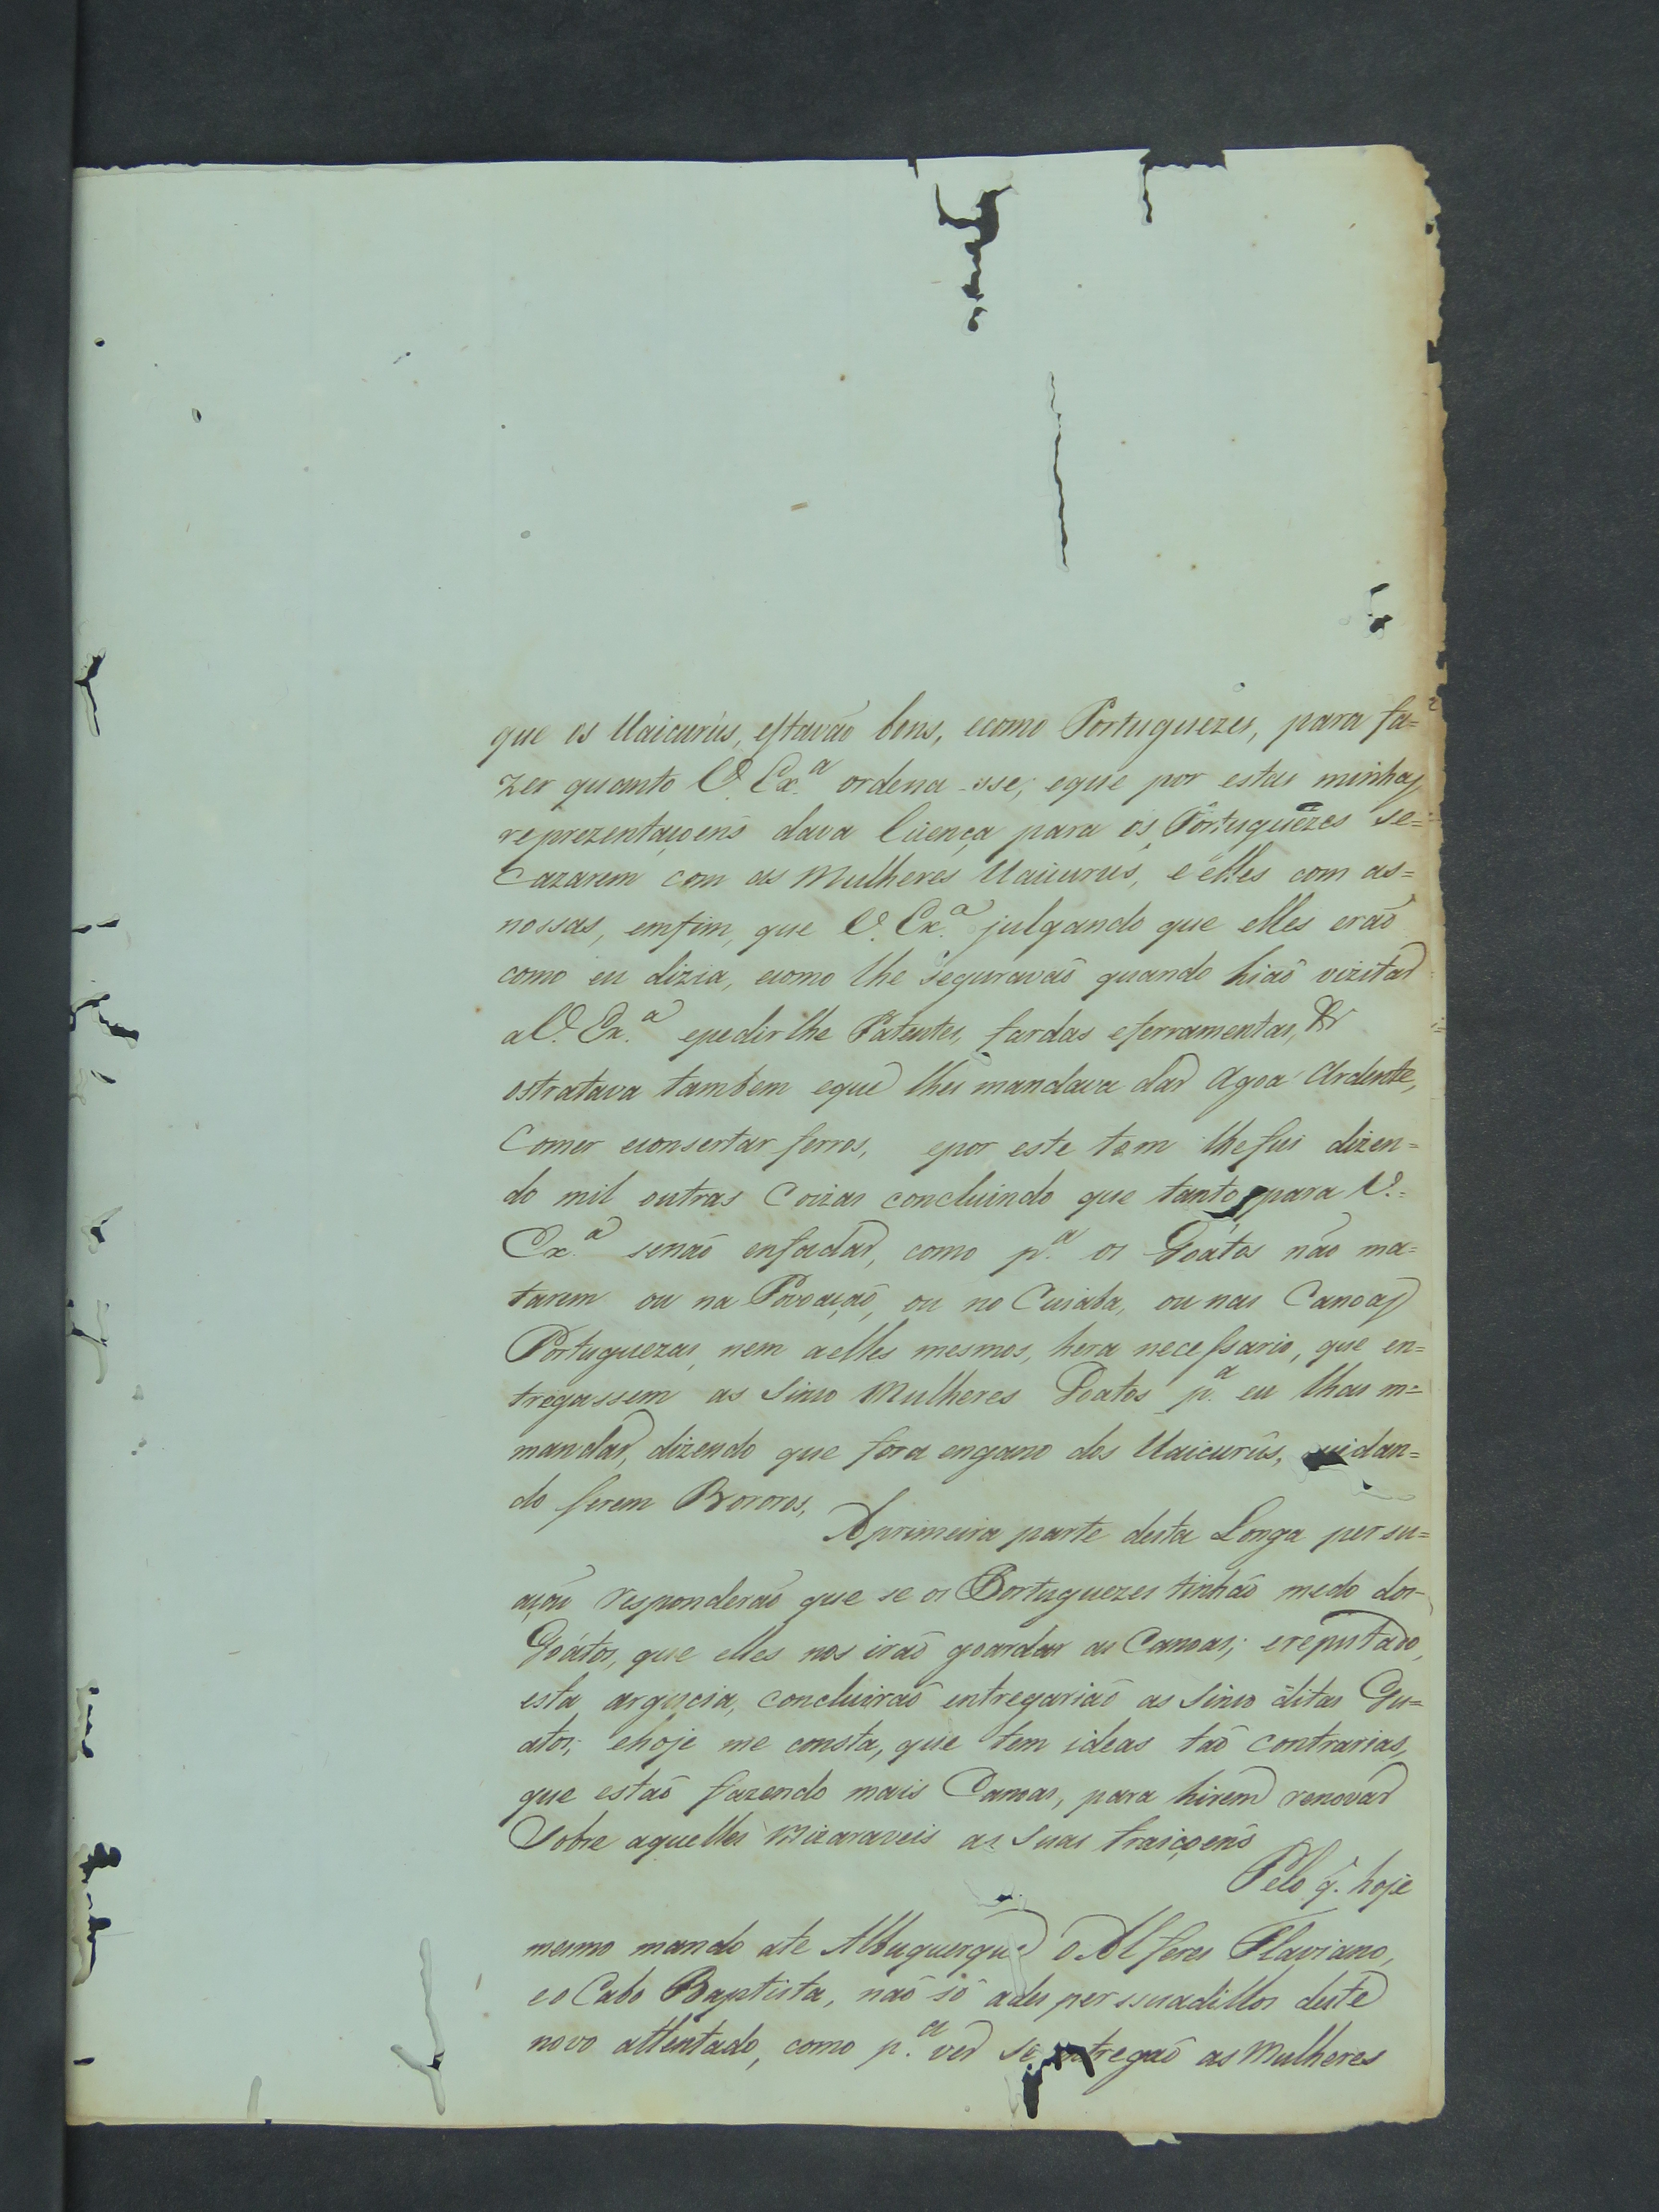 que os Uaicurús, estavaõ bons, ecomo Portuguezes, para fa=
zer quanto V. Ex.ª ordena-sse; eque por estas minhas
reprezentaçoens dava licença para os Portuguezes se=
Cazarem com as Mulheres Uaicurús, e elles com as=
nossas, emfim, que V. Ex.ª julgando que elles eraõ
como eu dizia, ecomo lhe seguravaõ quando hiaõ vizitar
aV. Ex.ª epedirlhe Patentes, fardas eferramentas, &ª
ostratava tambem eque lhes mandava dar Agoa Ardente,
Comer econsertar ferros, epor este tom lhefui dizen=
do mil outras Coizas concluindo que tanto para V.=
Ex.ª senaõ enfadar, como p.ª os Goátos não ma=
tarem ou na Povoaçaõ, ou no Cuiaba, ou nas Canoas
Portuguezas, nem aelles mesmos, hera necessario, que en=
tregassem as Sinco Mulheres Goatos p.ª eu lhas m=
mandar, dizendo que fora engano dos Uaicurûs, cuidan=
do serem Bororos,
Aprimeira parte desta Longa persu=
açaõ responderaõ que se os Portuguezes tinhaõ medo dos
Goátos, que elles nos iraõ goardar as Canoas; ereputado,
esta argucia, concluiraõ entregariaõ as Sinco ditas Gu=
atos; ehoje me consta, que tem ideas taõ contrarias,
que estaõ fazendo mais Canoas, para hirem renovar
Sobre aquelles Mizaraveis as Suas traiçoens
Pelo q. hoje
mesmo mando ate Albuquerque o Alferes Flaviano,
eo Cabo Baptista, naõ só ades perssuadillos deste
novo attentado, como p.ª ver se entregaõ as Mulheres